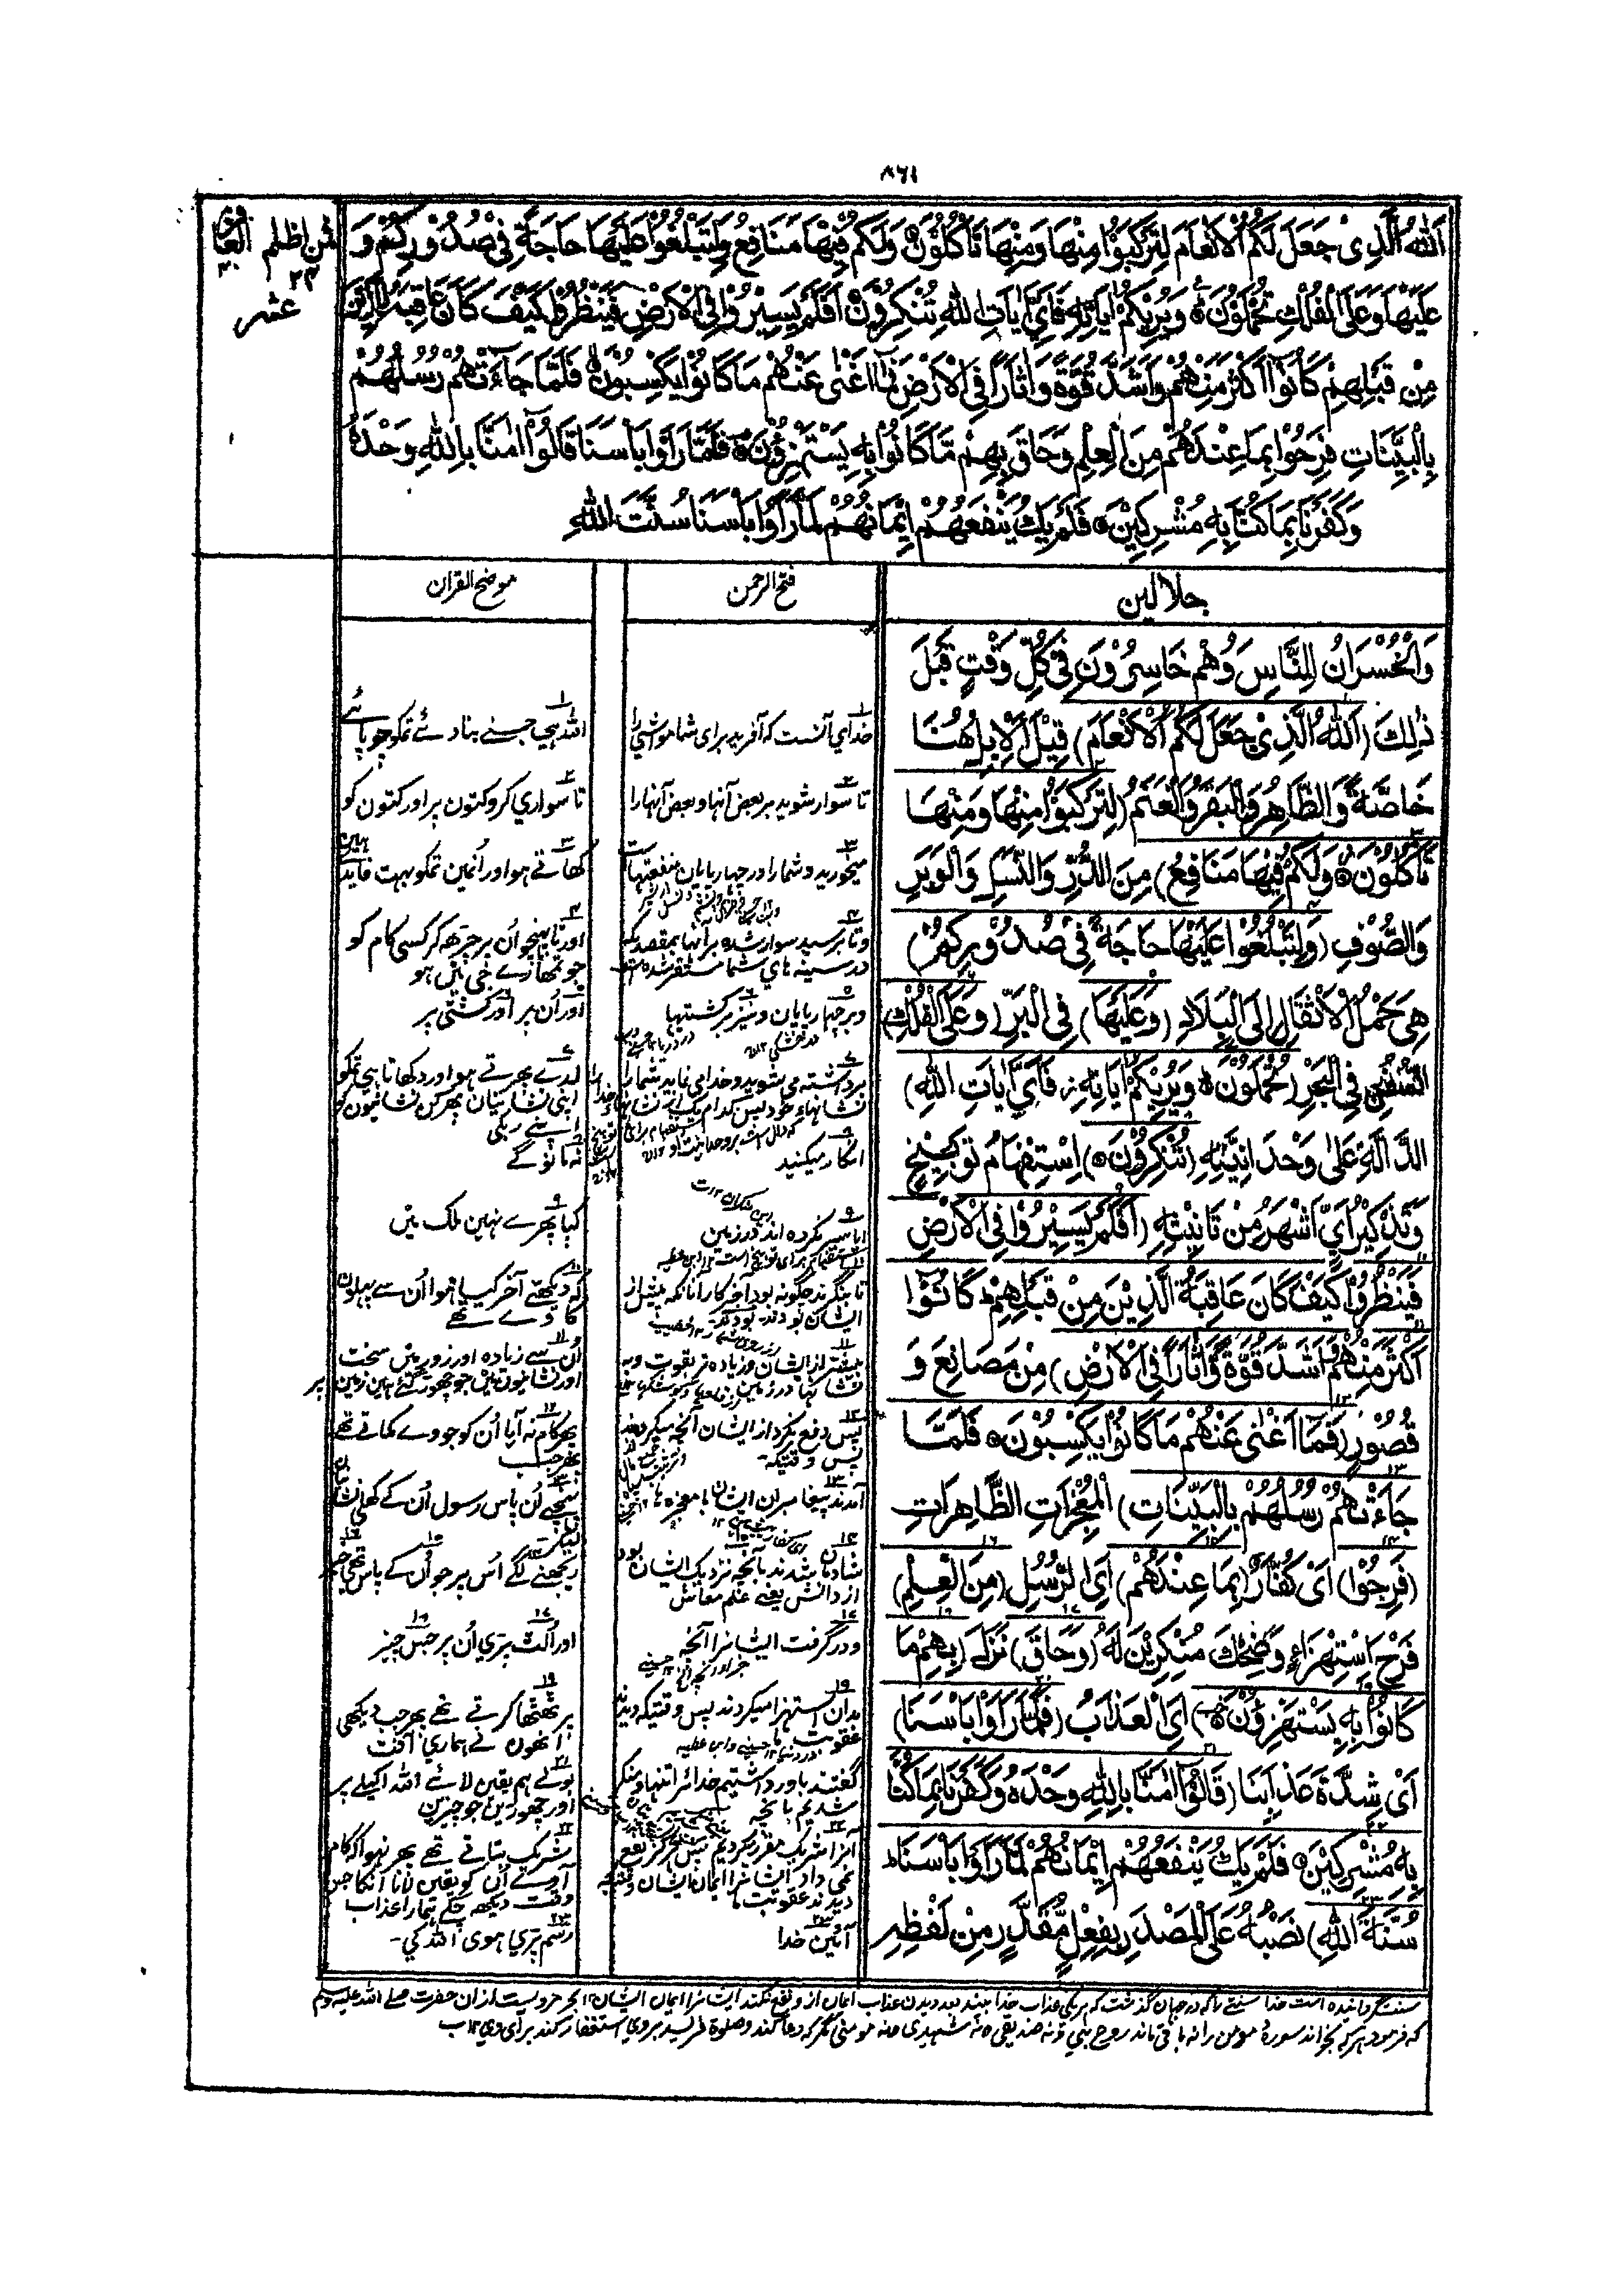 ٨٦١
اَللّٰهُ الَّذِىْ جَعَلَ لَكُمُ الْاَنْعَامَ لِتَرْكَبُوْا مِنْهَا وَمِنْهَا تَاْكُلُوْنَ وَلَكُمْ فِيْهَا مَنَافِعُ وَلِتَبْلُغُوْا عَلَيْهَا حَاجَةً فِىْ صُدُوْرِكُمْ وَ
عَلَيْهَا وَعَلَى الْفُلْكِ تُحْمَلُوْنَ وَيُرِيْكُمْ اٰيَاتِهٖ فَاَىَّ اٰيَاتِ اللّٰهِ تُنْكِرُوْنَ اَفَلَمْ يَسِيْرُوْا فِى الْاَرْضِ فَيَنْظُرُوْا كَيْفَ كَانَ عَاقِبَةُ الَّذِيْنَ
مِنْ قَبْلِهِمْ كَانُوْا اَكْثَرَ مِنْهُمْ وَاَشَدَّ قُوَّةً وَّاٰثَارًا فِى الْاَرْضِ فَمَا اَغْنٰى عَنْهُمْ مَا كَانُوْا يَكْسِبُوْنَ فَلَمَّا جَاءَتْهُمْ رُسُلُهُمْ
بِالْبَيِّنَاتِ فَرِحُوْا بِمَا عِنْدَهُمْ مِنَ الْعِلْمِ وَحَاقَ بِهِمْ مَّا كَانُوْا بِهٖ يَسْتَهْزِءُوْنَ فَلَمَّا رَاَوْا بَاْسَنَا قَالُوْا اٰمَنَّا بِاللّٰهِ وَحْدَهٗ
وَكَفَرْنَا بِمَا كُنَّا بِهٖ مُشْرِكِيْنَ فَلَمْ يَكُ يَنْفَعُهُمْ اِيْمَانُهُمْ لَمَّا رَاَوْا بَاْسَنَا سُنَّتَ اللّٰهِ
فمن اظلم ٢٣
عشر
جلالين
وَالْخُسْرَانُ لِلنَّاسِ وَهُمْ خَاسِرُوْنَ فِىْ كُلِّ وَقْتٍ قَبْلَ
ذٰلِكَ (اَللّٰهُ الَّذِىْ جَعَلَ لَكُمُ الْاَنْعَامَ) قِيْلَ الْاِبِلُ هُنَا
خَاصَّةً وَالظَّاهِرُ وَالْبَقَرُ وَالْغَنَمُ (لِتَرْكَبُوْا مِنْهَا وَمِنْهَا
تَاْكُلُوْنَ وَلَكُمْ فِيْهَا مَنَافِعُ) مِنَ الدَّرِّ وَالنَّسْلِ وَالْوَبَرِ
وَالصُّوْفِ (وَلِتَبْلُغُوْا عَلَيْهَا حَاجَةً فِىْ صُدُوْرِكُمْ)
هِىَ حَمْلُ الْاَثْقَالِ اِلَى الْبِلَادِ (وَعَلَيْهَا) فِى الْبَرِّ (وَعَلَى الْفُلْكِ)
السُّفُنِ فِى الْبَحْرِ (تُحْمَلُوْنَ وَيُرِيْكُمْ اٰيَاتِهٖ فَاَىَّ اٰيَاتِ اللّٰهِ)
الدَّالَّةِ عَلٰى وَحْدَانِيَّتِهٖ (تُنْكِرُوْنَ) اِسْتِفْهَامُ تَوْبِيْخٍ
وَتَذْكِيْرُ اَىٍّ اَشْهَرُ مِنْ تَانِيْثِهٖ (اَفَلَمْ يَسِيْرُوْا فِى الْاَرْضِ
فَيَنْظُرُوْا كَيْفَ كَانَ عَاقِبَةُ الَّذِيْنَ مِنْ قَبْلِهِمْ كَانُوْا
اَكْثَرَ مِنْهُمْ وَاَشَدَّ قُوَّةً وَّاٰثَارًا فِى الْاَرْضِ) مِنْ مَصَانِعَ وَ
قُصُوْرٍ (فَمَا اَغْنٰى عَنْهُمْ مَا كَانُوْا يَكْسِبُوْنَ فَلَمَّا
جَاءَتْهُمْ رُسُلُهُمْ بِالْبَيِّنَاتِ) الْمُعْجِزَاتِ الظَّاهِرَاتِ
(فَرِحُوْا) اَىْ كُفَّارُ (بِمَا عِنْدَهُمْ) اَىِ الرُّسُلِ (مِنَ الْعِلْمِ)
فَرَحَ اسْتِهْزَاءٍ وَضِحْكَ مُنْكِرِيْنَ لَهٗ (وَحَاقَ) نَزَلَ (بِهِمْ مَا
كَانُوْا بِهٖ يَسْتَهْزِءُوْنَ) اَىِ الْعَذَابُ (فَلَمَّا رَاَوْا بَاْسَنَا)
اَىْ شِدَّةَ عَذَابِنَا (قَالُوْا اٰمَنَّا بِاللّٰهِ وَحْدَهٗ وَكَفَرْنَا بِمَا كُنَّا
بِهٖ مُشْرِكِيْنَ فَلَمْ يَكُ يَنْفَعُهُمْ اِيْمَانُهُمْ لَمَّا رَاَوْا بَاْسَنَا
سُنَّةَ اللّٰهِ) نَصْبُهٗ عَلَى الْمَصْدَرِ بِفِعْلٍ مُّقَدَّرٍ مِنْ لَفْظِهٖ
فتح الرحمن
خداى آنست كه آفريد براى شما مواشى را
تا سوار شويد بر بعض آنها و بعض آنها را
ميخوريد و شما را در چهارپايان منفعتهاست
و تا برسيد سوار شده بر آنها بمقصدى كه
در سينه هاى شما مستقر شده است
و بر چهارپايان و نيز بر كشتيها
برداشته مى شويد و خدا مى نمايد شما را
نشانهاء خود پس كدام يك از نشانهاء خدا را
انكار ميكنيد
ايا سير نكرده اند در زمين
تا بنگرند چگونه بود آخر كار آنانكه پيش از
ايشان بودند بودند
بيشتر از ايشان و زياده تر بقوت و به
نشانها در زمين
پس دفع نكرد از ايشان آنچه ميكردند
پس وقتيكه
آمدند پيغامبران ايشان با معجزه ها
شادمان شدند بآنچه نزديك ايشان بود
از دانش يعنى علم معاش
و درگرفت ايشانرا آنچه
بدان استهزا ميكردند پس وقتيكه ديدند
عقوبت ما
گفتند باور داشتيم خدا را تنها و منكر
شديم بآنچه
آنرا شريك مقرر ميكرديم پس هرگز نفع
نمى داد ايشانرا ايمان ايشان وقتيكه
ديدند عقوبت ما
آئين خدا
موضح القران
الله هى جسنے بنا دئے تمكو چوپائے
تا سواري كرو كتون پر اور كتون كو
كهاتے هو اور اُنمين تمكو بهت فايدے هين
اور تا پهنچو اُن پر چڑهه كر كسى كام كو
جو تمهارے جى مين هو
اور اُن پر اور كشتى پر
لدے پهرتے هو اور دكهاتا هى تمكو
اپنى نشانيان پهر كن نشانيون كو
اپنے رب كى
نه مانوگے
كيا پهرے نهين ملك مين
كه ديكهتے آخر كيسا هوا اُن سے پهلون
كا وے تهے
اُن سے زياده اور زور مين سخت
اور نشانيون مين جو چهوڑ گئے هين زمين پر
پهر كام نه آيا اُن كو جو وے كماتے تهے
پهر جب
پهنچے اُن پاس رسول اُن كے كهلى نشانيان
ليكر
ريجهنے لگے اُس پر جو اُن كے پاس تهى خبر
اور اُلٹ پڑى اُن پر جس چيز
پر ٹهٹها كرتے تهے پهر جب ديكهى
اُنهون نے همارى آفت
بولے هم يقين لائے الله اكيلے پر
اور چهوڑين جو چيزين
شريك بتاتے تهے پهر نهوا كه كام
آوے اُن كو يقين لانا اُنكا جس
وقت ديكهه چكے همارا عذاب
رسم پڑى هوى الله كى
سنت گردانيده است خدا سنتے را كه در جهان گذشت كه هر يكى عذاب خدا بيند بعد ديدن عذاب ايمان ار و نفع نكند ايشانرا ايمان ايشان ١٢ بحر مرويست از ان حضرت صلے الله عليه وسلم
كه فرمود هر كه بخواند سورهٔ مومن را نه باقى ماند روح نبي و نه صديقى و نه شهيدى و نه مومنى مگر كه دعا كند و صلوة فرستد بروي و استغفار كند براى وي ١٢ ب